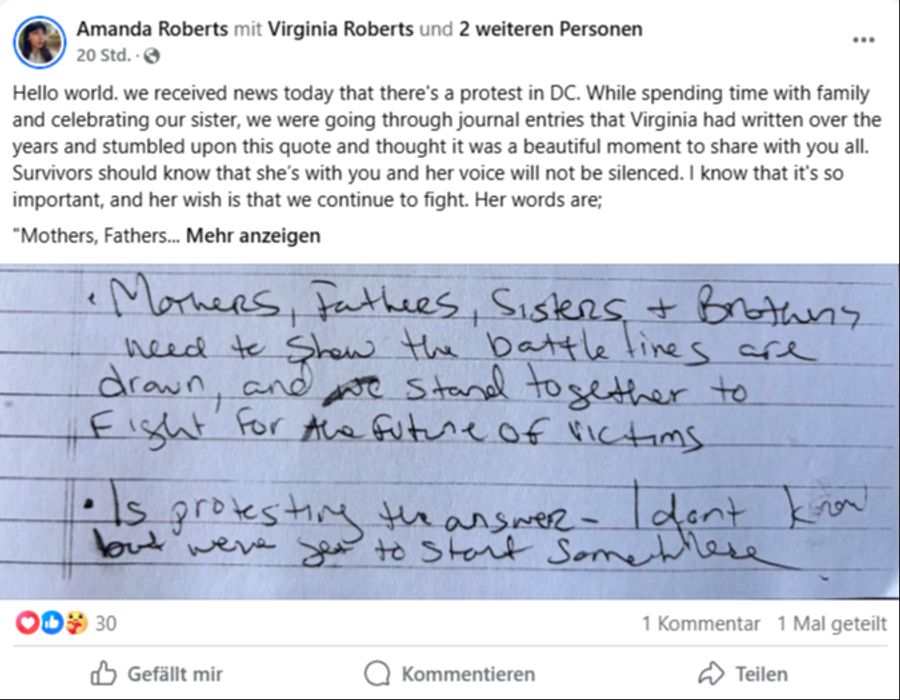 Amanda Roberts mit Virginia Roberts und 2 weiteren Personen
20 Std. ·
Hello world. we received news today that there's a protest in DC. While spending time with family
and celebrating our sister, we were going through journal entries that Virginia had written over the
years and stumbled upon this quote and thought it was a beautiful moment to share with you all.
Survivors should know that she's with you and her voice will not be silenced. I know that it's so
important, and her wish is that we continue to fight. Her words are;
"Mothers, Fathers... Mehr anzeigen
• Mothers, Fathers, Sisters + Brothers
need to show the battle lines are
drawn, and we stand together to
Fight for the future of victims
• Is protesting the answer - I dont know
but weve got to start somewhere
30
1 Kommentar 1 Mal geteilt
Gefällt mir Kommentieren Teilen